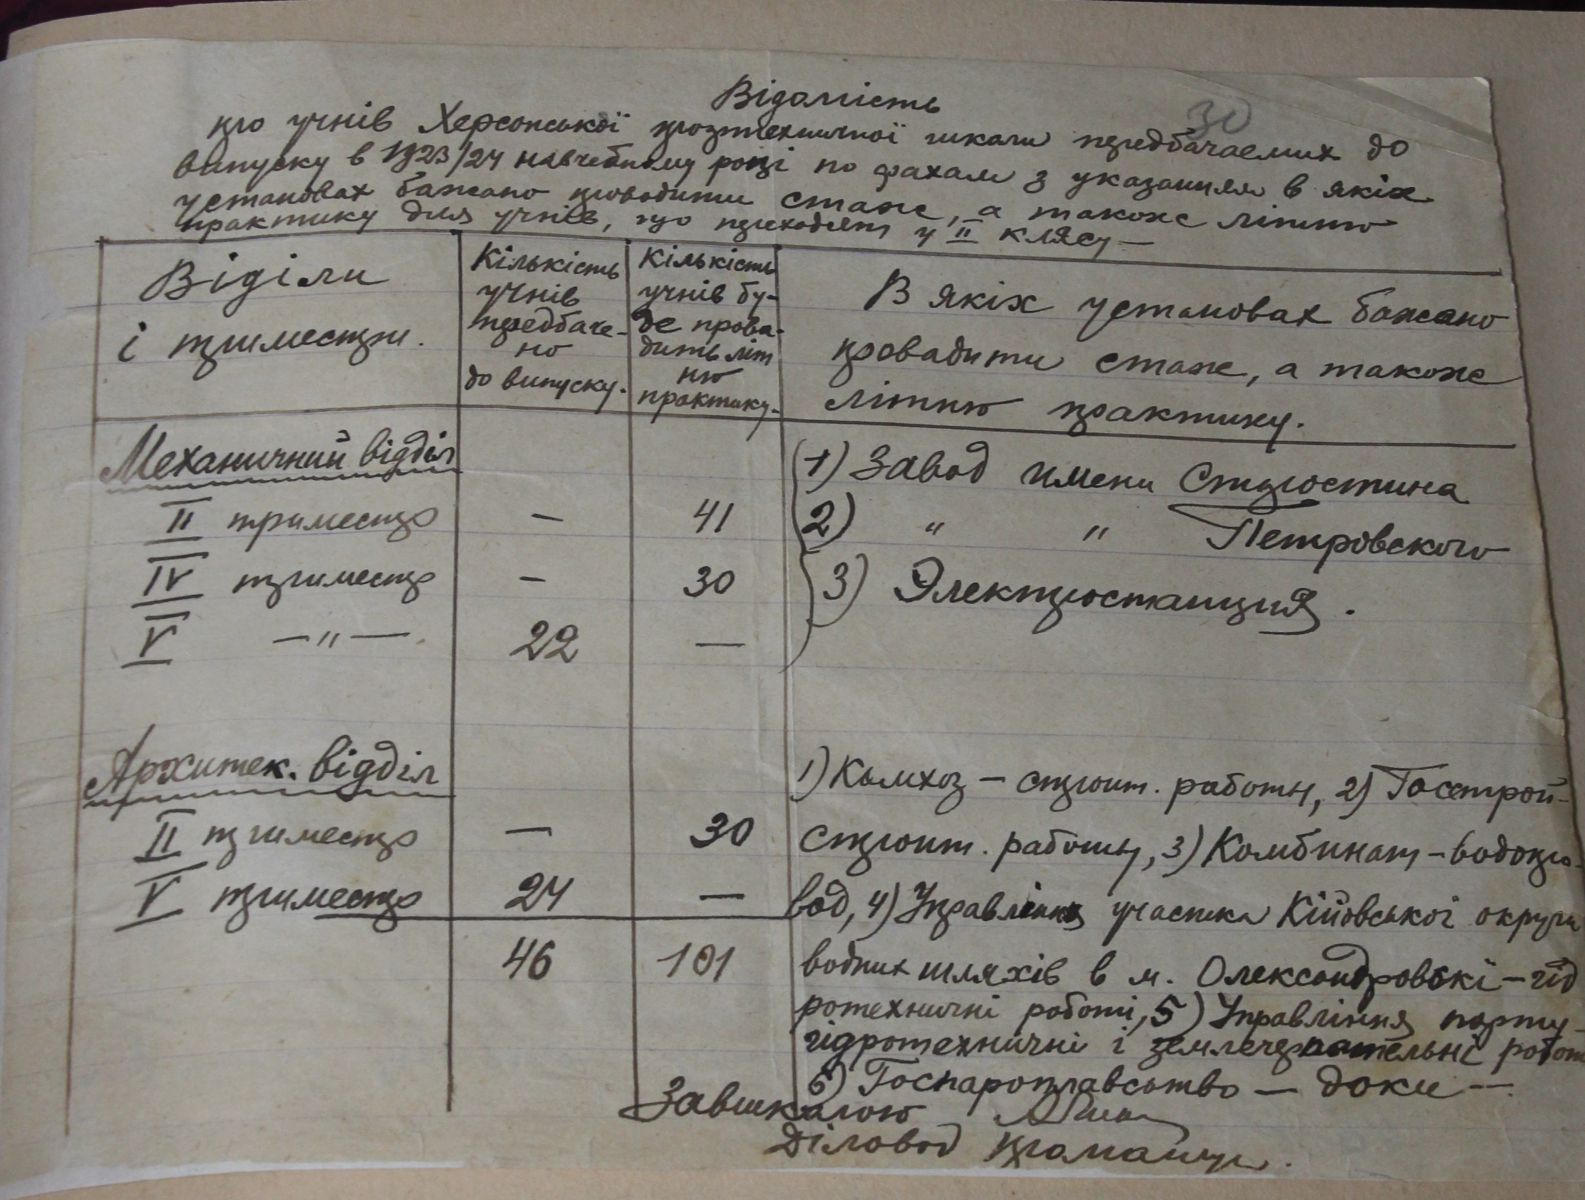 30
Відомість
про учнів Херсонської профтехничної школи передбачаемих до
випуску в 1923/24 навчебному році по фахам з указанням в якіх
установах бажано проводити стаж, а також літню
практику для учнів, що приходят у II клясу —
Віділи
і триместри.
Кількість
учнів
передбаче-
но
до випуску.
Кількість
учнів бу-
де прова-
дить літ
ню
практику.
В якіх установах бажано
провадити стаж, а також
літню практику.
Механичний відділ
II триместр — 41
IV триместр — 30
V —"—. 22 —
1) Завод имени Стуростина
2) " " Петровского
3) Электростанция.
Архитек. відділ
II триместр — 30
V триместр 24 —
46 101
1) Комхоз — строит. работы, 2) Госстрой-
строит. работы, 3) Комбинат – водопро-
вод, 4) Управління участка Кійовської округи
водних шляхів в м. Олександровскі – гід
ротехничні роботі, 5) Управління порту-
гідротехничні і землечерпательні робот
6) Госпароплавство — доки —
Завшколою
Діловод